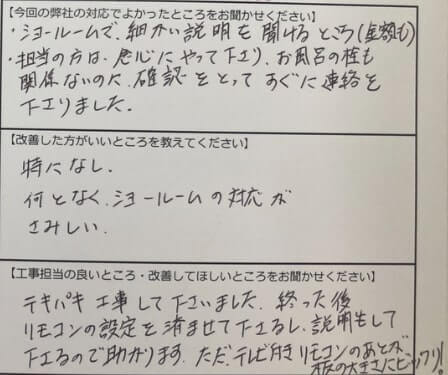 【今回の弊社の対応でよかったところをお聞かせください】
・ショールームで、細かい説明を聞けるところ(金額も)
・担当の方は、熱心にやって下さり、お風呂の栓も
関係ないのに、確認をとってすぐに連絡を
下さりました。
【改善した方がいいところを教えてください】
特になし。
何となく、ショールームの対応が
さみしい。
【工事担当の良いところ・改善してほしいところをお聞かせください】
テキパキ工事して下さいました。終った後
リモコンの設定を済ませて下さるし、説明もして
下さるので助かります。ただ、テレビ付きリモコンのあとが、
板の大きさにビックリ!